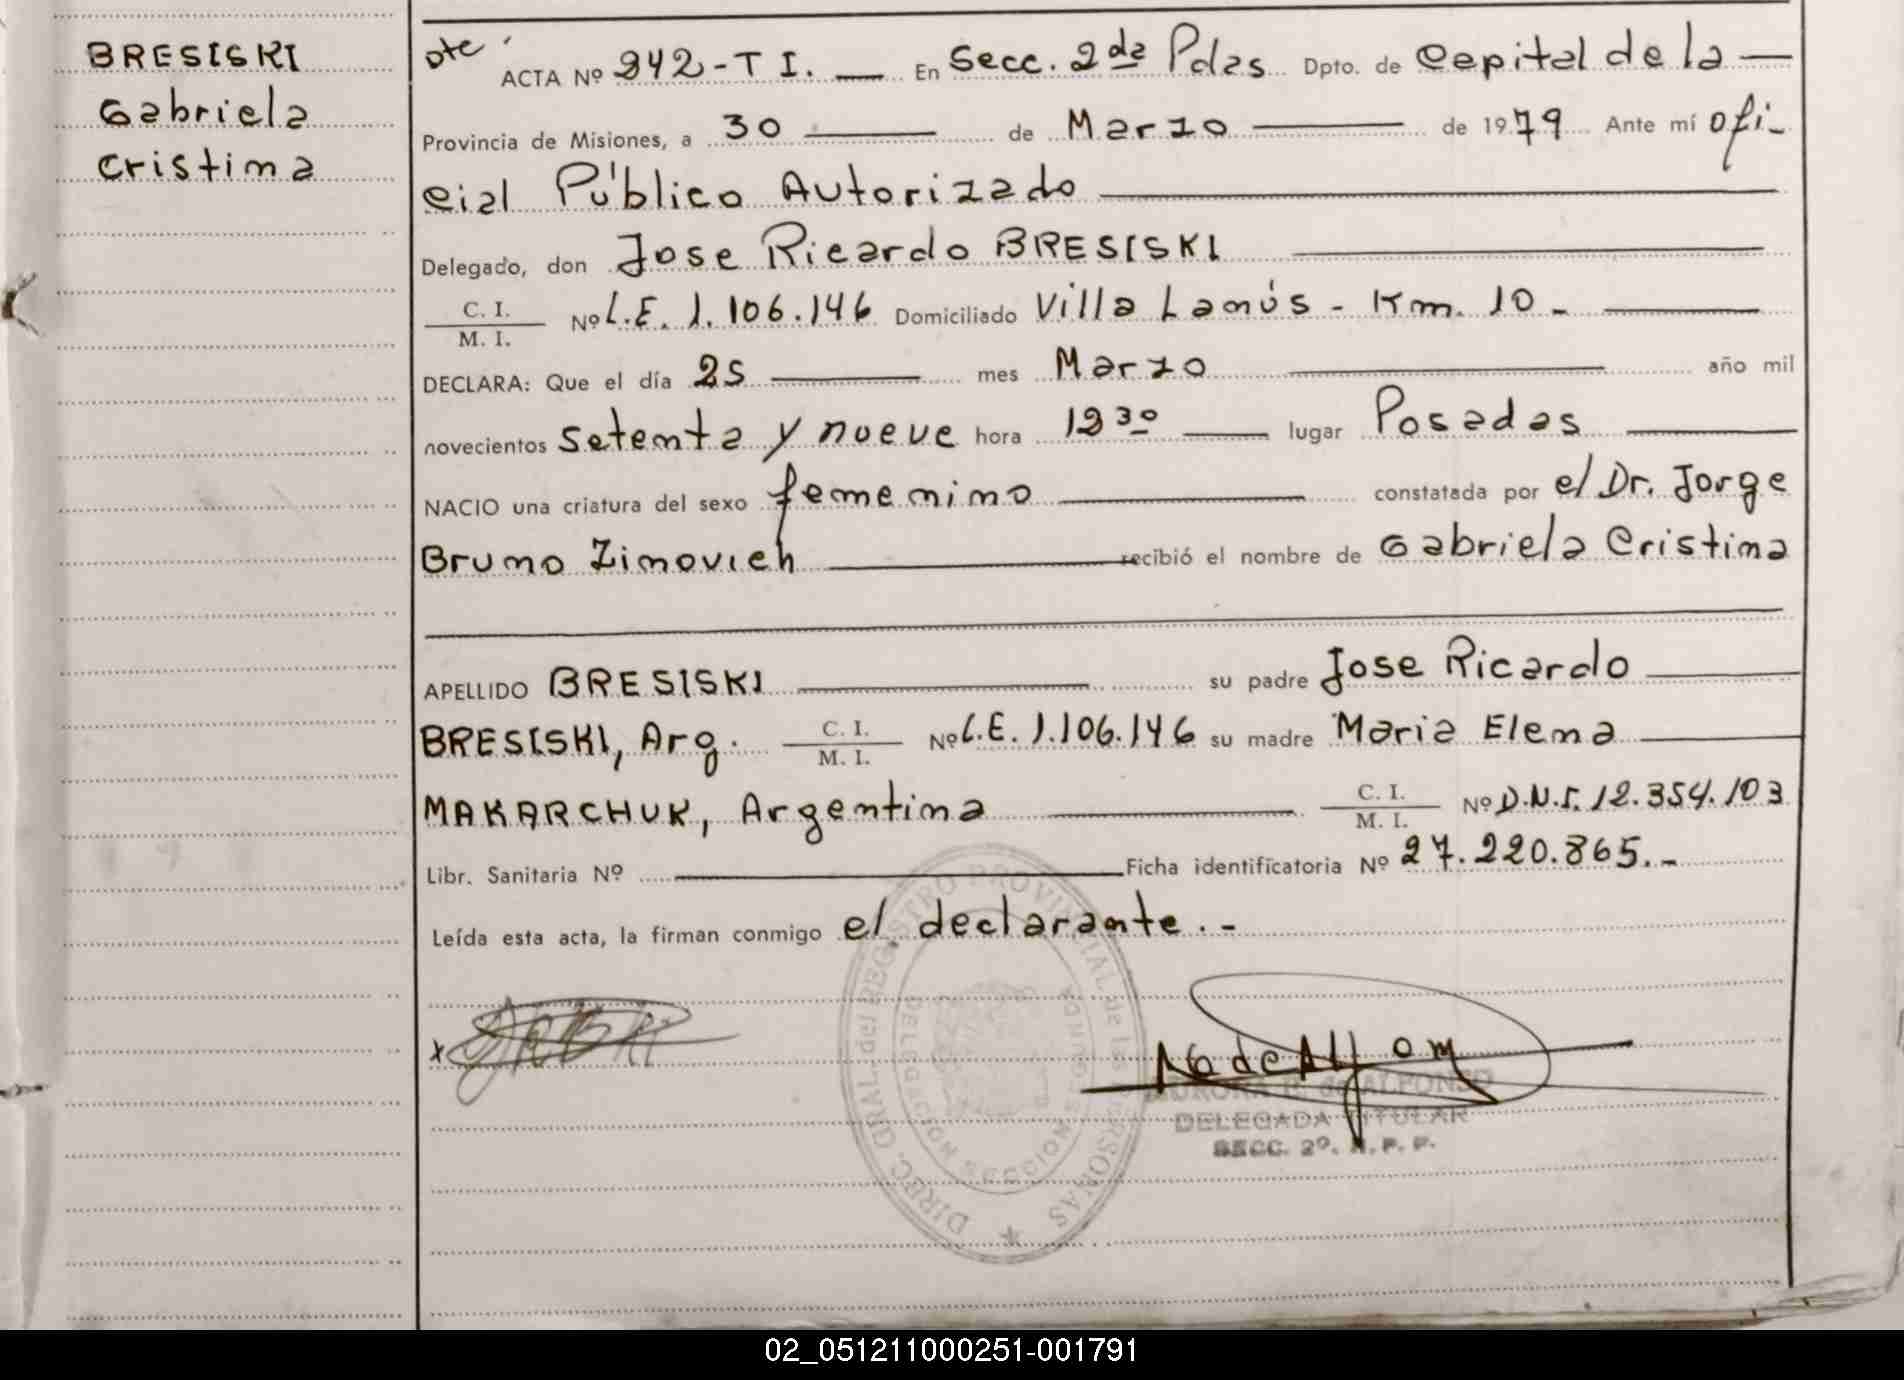 BRESISKI
Gabriela
Cristina
Dte
ACTA Nº 242-T I. En Secc. 2da Pdas Dpto. de Capital de la
Provincia de Misiones, a 30 de Marzo de 1979 Ante mí ofi-
cial Público Autorizado
Delegado, don Jose Ricardo BRESISKI
C. I.
M. I.
Nº L.E. 1.106.146 Domiciliado Villa Lanús - Km. 10 -
DECLARA: Que el día 25 mes Marzo año mil
novecientos setenta y nueve hora 1230 lugar Posadas
NACIO una criatura del sexo femenino constatada por el Dr. Jorge
Bruno Zimovich recibió el nombre de Gabriela Cristina
APELLIDO BRESISKI su padre Jose Ricardo
BRESISKI, Arg. C. I. M. I. Nº L.E. 1.106.146 su madre Maria Elena
MAKARCHUK, Argentina C. I. M. I. Nº D.N.I. 12.354.103
Libr. Sanitaria Nº Ficha identificatoria Nº 27.220.865.-
Leída esta acta, la firman conmigo el declarante.-
DIREC. GRAL. del REGISTRO PROVINCIAL de las PERSONAS
DELEGACION SECCION SEGUNDA
x
de ALFONSO
DELEGADA TITULAR
SECC. 2º. R. P. P.
02_051211000251-001791